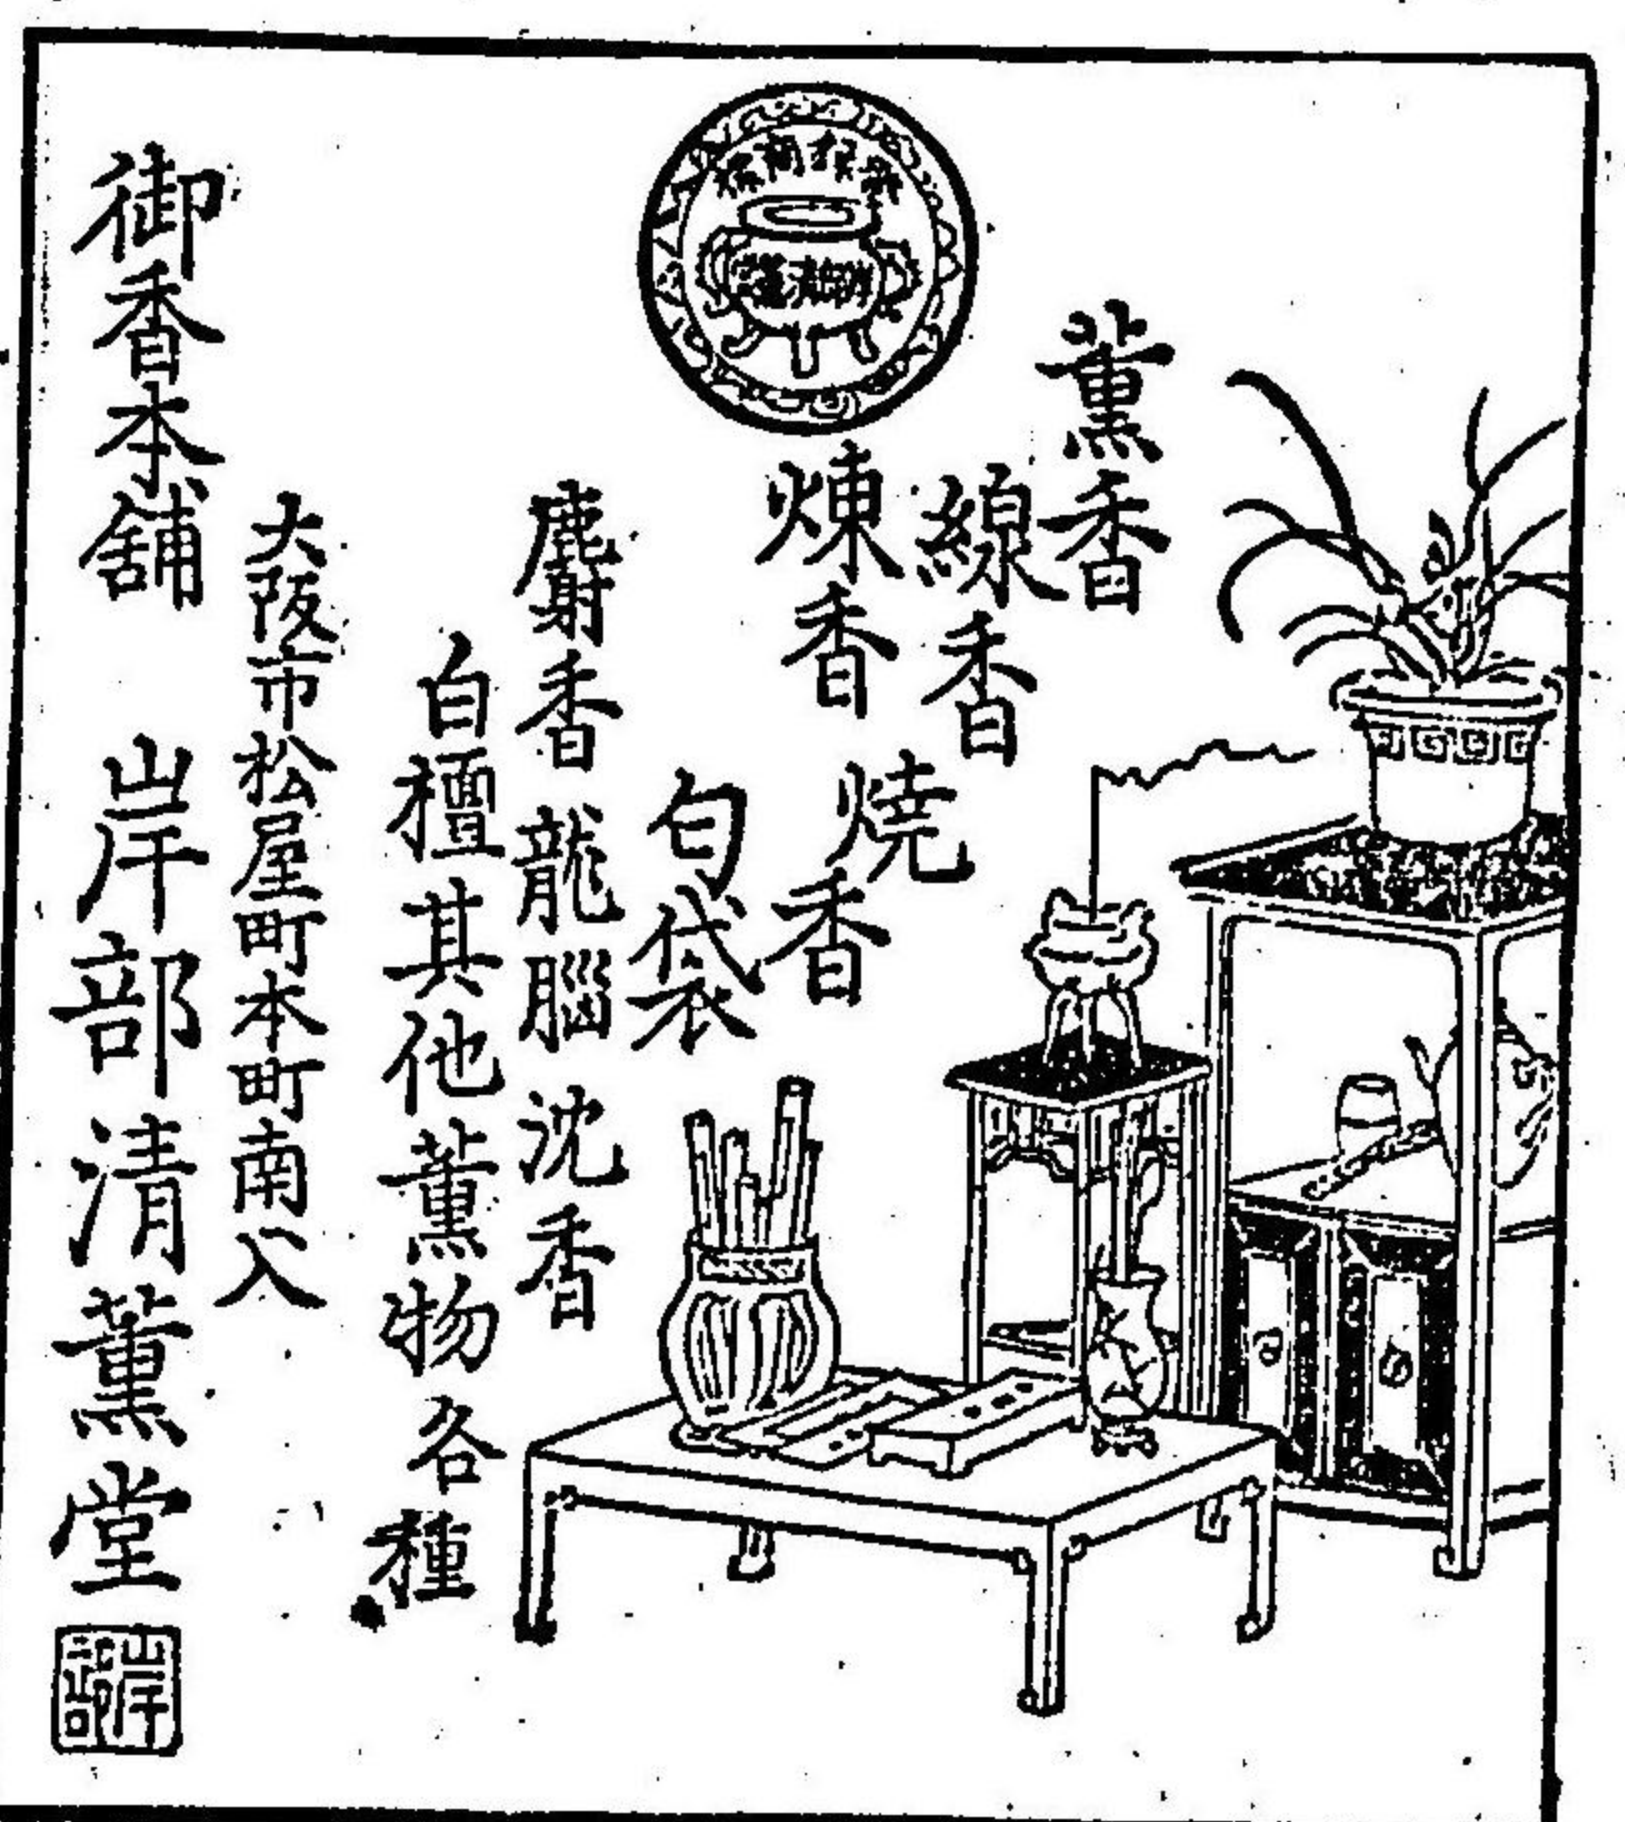 薫香
線香
煉香
燒香
匂袋
麝香 龍腦 沈香
白檀其他薫物各種
大阪市松屋町本町南入
御香本舖 岸部清薫堂
岸部